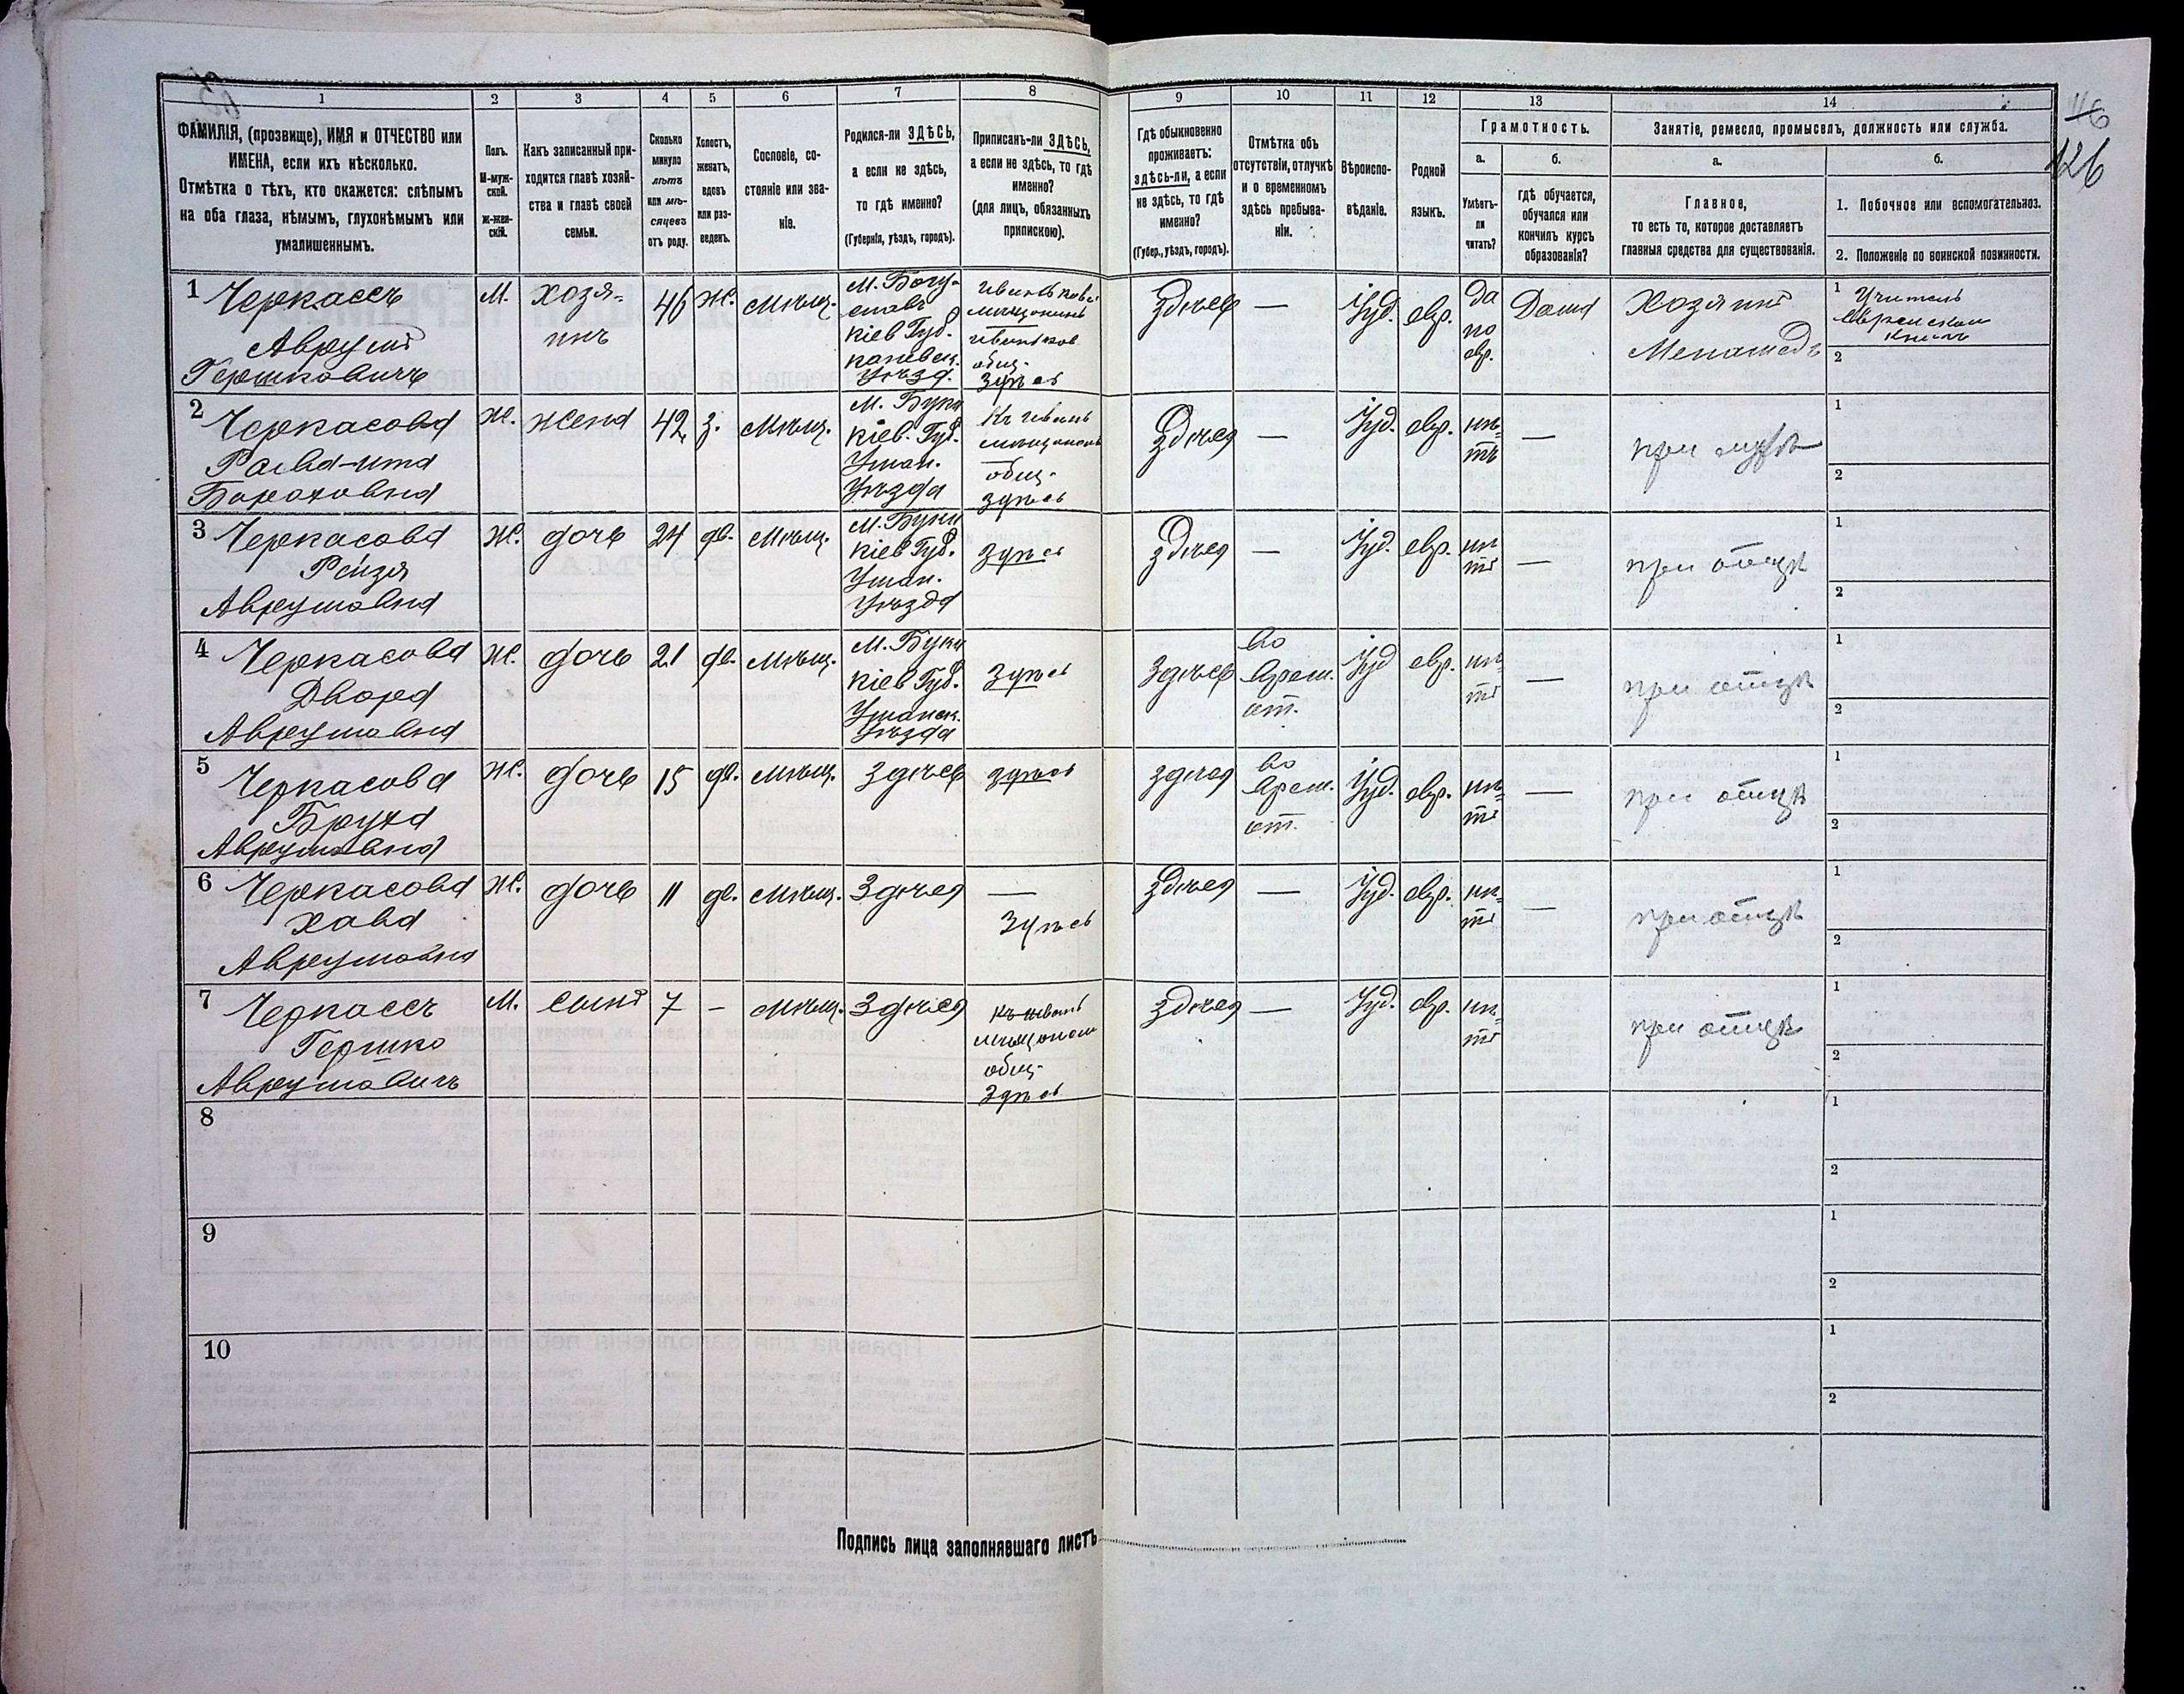 46
126
1 2 3 4 5 6 7 8 9 10 11 12 13 14
ФАМИЛІЯ, (прозвище), ИМЯ и ОТЧЕСТВО или
ИМЕНА, если ихъ нѣсколько.
Отмѣтка о тѣхъ, кто окажется: слѣпымъ
на оба глаза, нѣмымъ, глухонѣмымъ или
умалишеннымъ.
Полъ.
М-муж-
ской.
ж-жен-
скій.
Какъ записанный при-
ходится главѣ хозяй-
ства и главѣ своей
семьи.
Сколько
минуло
лѣтъ
или мѣ-
сяцевъ
отъ роду.
Холостъ,
женатъ,
вдовъ
или раз-
веденъ.
Сословіе, со-
стояніе или зва-
ніе.
Родился-ли ЗДѢСЬ,
а если не здѣсь,
то гдѣ именно?
(Губернія, уѣздъ, городъ).
Приписанъ-ли ЗДѢСЬ,
а если не здѣсь, то гдѣ
именно?
(для лицъ, обязанныхъ
припискою).
Гдѣ обыкновенно
проживаетъ:
здѣсь-ли, а если
не здѣсь, то гдѣ
именно?
(Губер., уѣздъ, городъ).
Отмѣтка объ
отсутствіи, отлучкѣ
и о временномъ
здѣсь пребыва-
ніи.
Вѣроиспо-
вѣданіе.
Родной
языкъ.
Грамотность.
а.
Умѣетъ-
ли
читать?
б.
гдѣ обучается,
обучался или
кончилъ курсъ
образованія?
Занятіе, ремесло, промыселъ, должность или служба.
а.
Главное,
то есть то, которое доставляетъ
главныя средства для существованія.
б.
1. Побочное или вспомогательное.
2. Положеніе по воинской повинности.
1 Черкассъ
Аврумъ
Гершковичъ
М.
хозя-
инъ
46
Ж.
мѣщ.
М. Богу-
славъ
Кіев Губ.
каневск.
Уѣзд.
общ.
здѣсь
Здѣсь
—
Іуд.
евр.
да
по
евр.
Дома
Хозяинъ
1 Учитель
2
2 Черкасова
Бороховна
Ж.
жена
42
з.
Мѣщ.
М. Буки
Кіев. Губ.
Уман.
Уѣзда
общ.
здѣсь
Здѣсь
—
Іуд.
евр.
нѣ-
тъ
—
при мужѣ
1
2
3 Черкасова
Рейзя
Аврумовна
Ж.
дочь
24
дв.
Мѣщ.
М. Буки
Кіев Губ.
Уман.
Уѣзда
здѣсь
здѣсь
—
Іуд.
евр.
нѣ
тъ
—
при отцѣ
1
2
4 Черкасова
Двора
Аврумовна
Ж.
дочь
21
дв.
Мѣщ.
М. Буки
Кіев Губ.
Уманск.
Уѣзда
здѣсь
здѣсь
во
врем.
от.
Іуд
евр.
нѣ-
тъ
—
при отцѣ
1
2
5 Черкасова
Бруха
Аврумовна
Ж.
дочь
15
дв.
мѣщ.
здѣсь
здѣсь
здѣсь
во
врем.
от.
Іуд.
евр.
нѣ-
тъ
—
при отцѣ
1
2
6 Черкасова
Хава
Аврумовна
Ж.
дочь
11
дв.
мѣщ.
Здѣсь
—
Здѣсь
здѣсь
—
Іуд.
евр.
нѣ-
тъ
—
при отцѣ
1
2
7 Черкассъ
Гершко
Аврумовичъ
М.
сынъ
7
–
мѣщ.
Здѣсь
общ.
Здѣсь
здѣсь
—
Іуд.
евр.
нѣ-
тъ
при отцѣ
1
2
8
1
2
9
1
2
10
1
2
Подпись лица заполнявшаго листъ